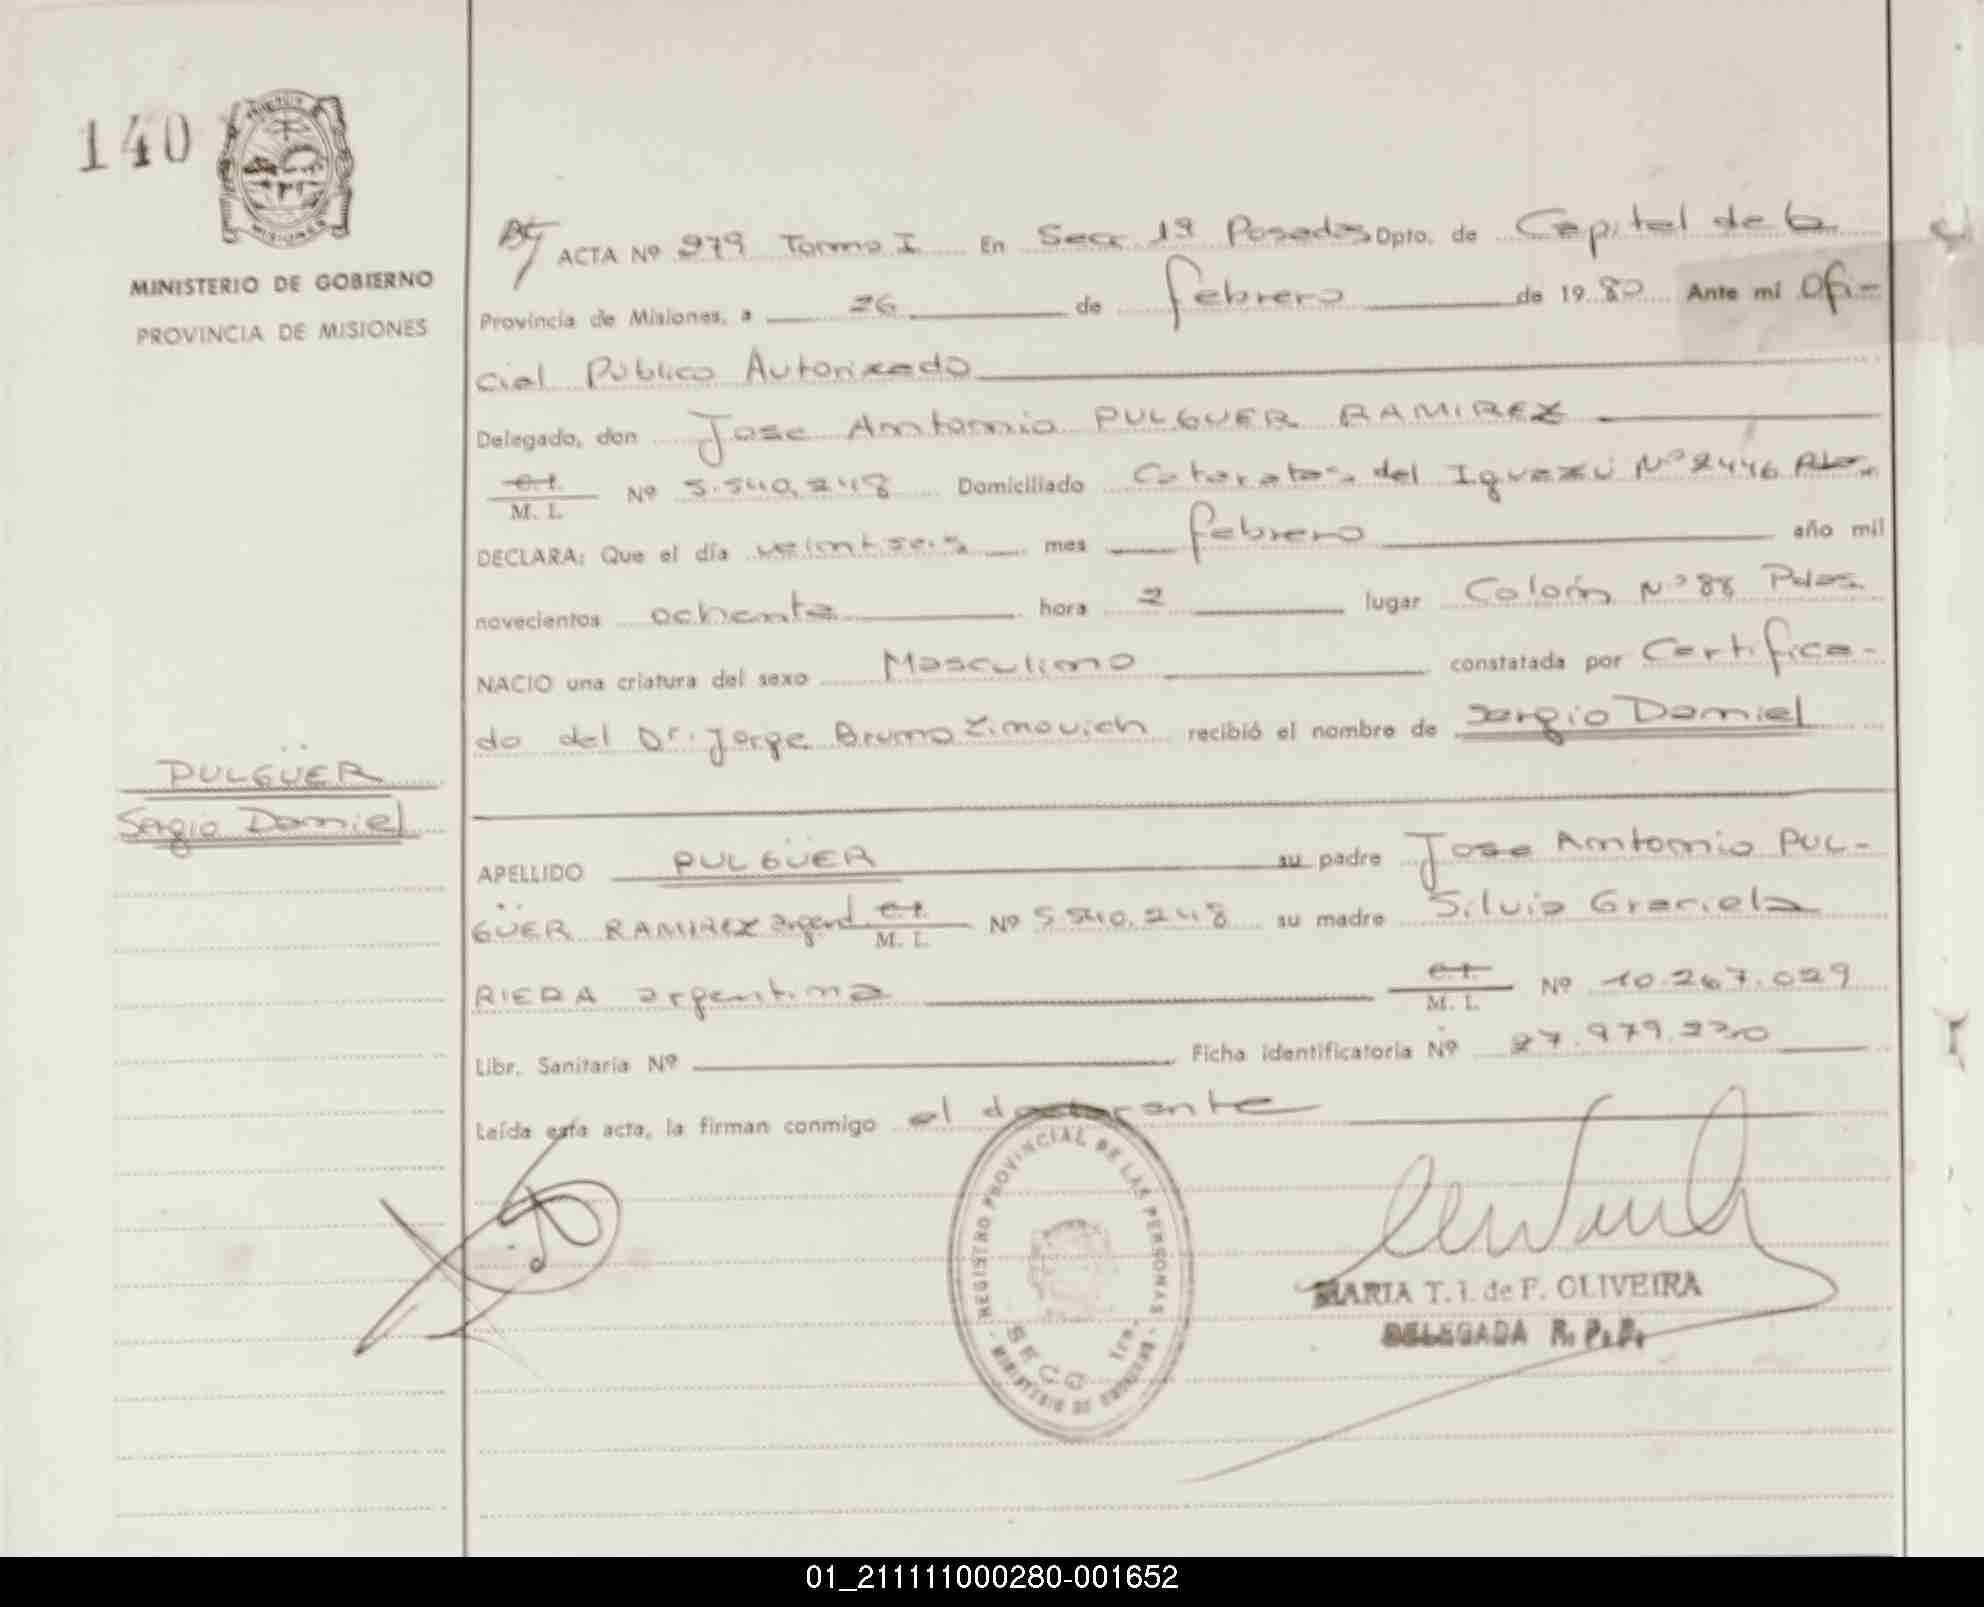 140
MINISTERIO DE GOBIERNO
PROVINCIA DE MISIONES
ACTA Nº 279 Tomo I En Secc 1ª Posadas Dpto. de Capital de la
Provincia de Misiones, a 26 de febrero de 1980 Ante mi Ofi-
cial Público Autorizado
Delegado, don Jose Antonio PULGUER RAMIREZ
C.I. M. I. Nº 5.540.248 Domiciliado Cataratas del Iguazú Nº 2446 Pdas.
DECLARA: Que el día veintiseis mes febrero año mil
novecientos ochenta hora 2 lugar Colón Nº 88 Pdas.
NACIO una criatura del sexo Masculino constatada por Certifica-
do del Dr. Jorge Bruno Zimovich recibió el nombre de Sergio Daniel
PULGÜER
Sergio Daniel
APELLIDO PULGÜER su padre Jose Antonio PUL-
GÜER RAMIREZ argent. C.I. M. I. Nº 5.540.248 su madre Silvia Graciela
RIERA argentina C.I. M. I. Nº 10.267.029
Libr. Sanitaria Nº Ficha identificatoria Nº 27.979.220
Leída esta acta, la firman conmigo el declarante
REGISTRO PROVINCIAL DE LAS PERSONAS
SECC 1ra.
MINISTERIO DE GOBIERNO
MARIA T. I. de F. OLIVEIRA
DELEGADA R. P. P.
01_211111000280-001652